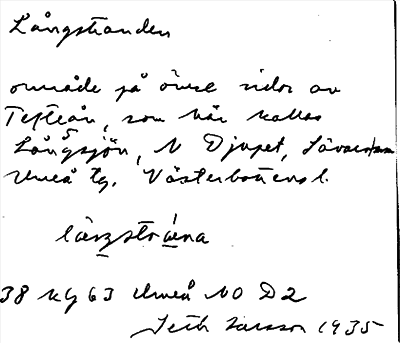 Långstranden
område på ömse sidor av
Tefteån, som här kallas
Långsjön, N Djupet, Sävar sn
Umeå tg. Västerbottens l.
lånstræna
38 Ug 63 Umeå NO D2
Seth Larsson 1935